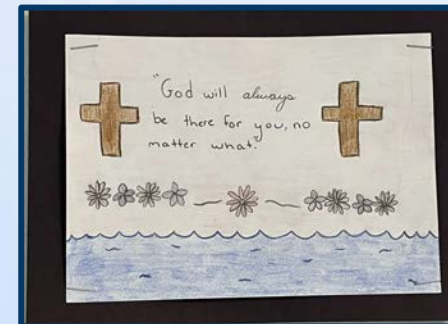 "God will always
be there for you, no
matter what."